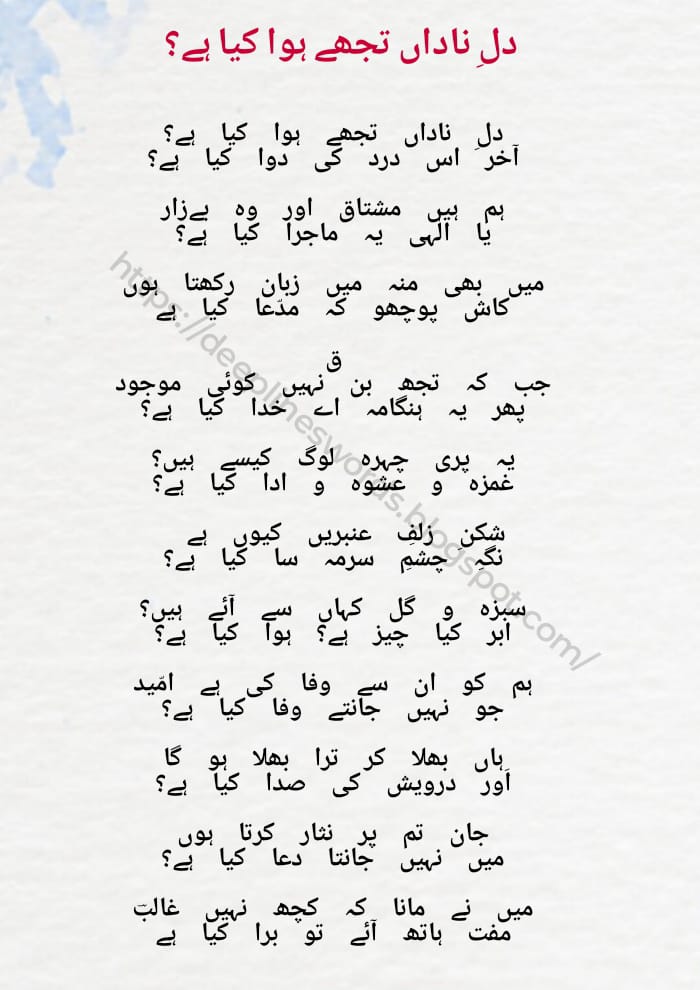 دلِ ناداں تجھے ہوا کیا ہے؟
دلِ ناداں تجھے ہوا کیا ہے؟
آخر اس درد کی دوا کیا ہے؟
ہم ہیں مشتاق اور وہ بےزار
یا الٰہی یہ ماجرا کیا ہے؟
میں بھی منہ میں زبان رکھتا ہوں
کاش پوچھو کہ مدّعا کیا ہے
ق
جب کہ تجھ بن نہیں کوئی موجود
پھر یہ ہنگامہ اے خدا کیا ہے؟
یہ پری چہرہ لوگ کیسے ہیں؟
غمزہ و عشوہ و ادا کیا ہے؟
شکنِ زلفِ عنبریں کیوں ہے
نگہِ چشمِ سرمہ سا کیا ہے؟
سبزہ و گل کہاں سے آئے ہیں؟
ابر کیا چیز ہے؟ ہوا کیا ہے؟
ہم کو ان سے وفا کی ہے امّید
جو نہیں جانتے وفا کیا ہے؟
ہاں بھلا کر ترا بھلا ہو گا
اَور درویش کی صدا کیا ہے؟
جان تم پر نثار کرتا ہوں
میں نہیں جانتا دعا کیا ہے؟
میں نے مانا کہ کچھ نہیں غالبؔ
مفت ہاتھ آئے تو برا کیا ہے
https://deeplineswords.blogspot.com/